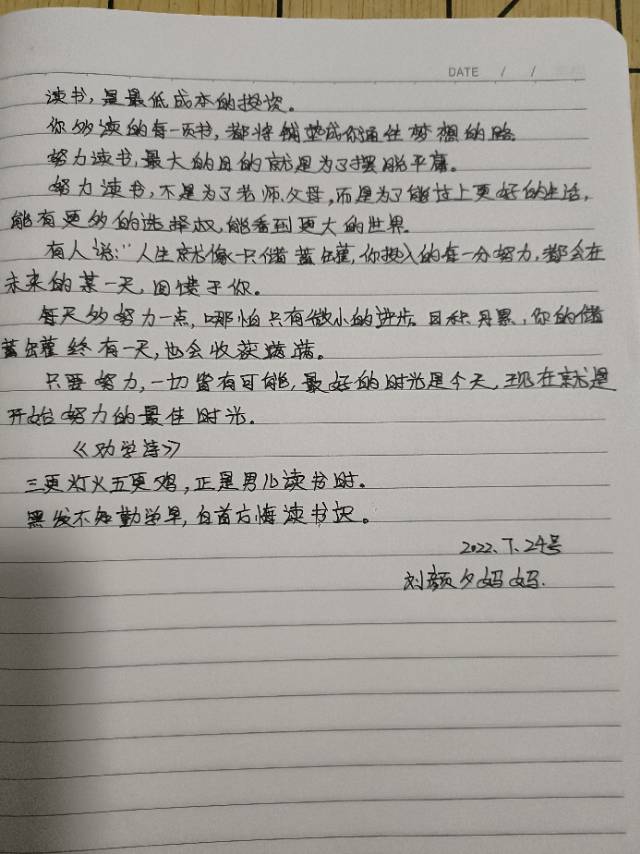 DATE / /
读书,是最低成本的投资。
你所读的每一页书,都将铺垫成你通往梦想的路
努力读书,最大的目的就是为了摆脱平庸。
努力读书,不是为了老师、父母,而是为了能过上更好的生活,
能有更多的选择权,能看到更大的世界。
有人说:“人生就像一只储蓄罐,你投入的每一分努力,都会在
未来的某一天,回馈于你。
每天多努力一点,哪怕只有微小的进步。日积月累,你的储
蓄罐终有一天,也会收获满满。
只要努力,一切皆有可能,最好的时光是今天,现在就是
开始努力的最佳时光。
《劝学诗》
三更灯火五更鸡,正是男儿读书时。
黑发不知勤学早,白首方悔读书迟。
2022.7.24号
刘颜夕妈妈.